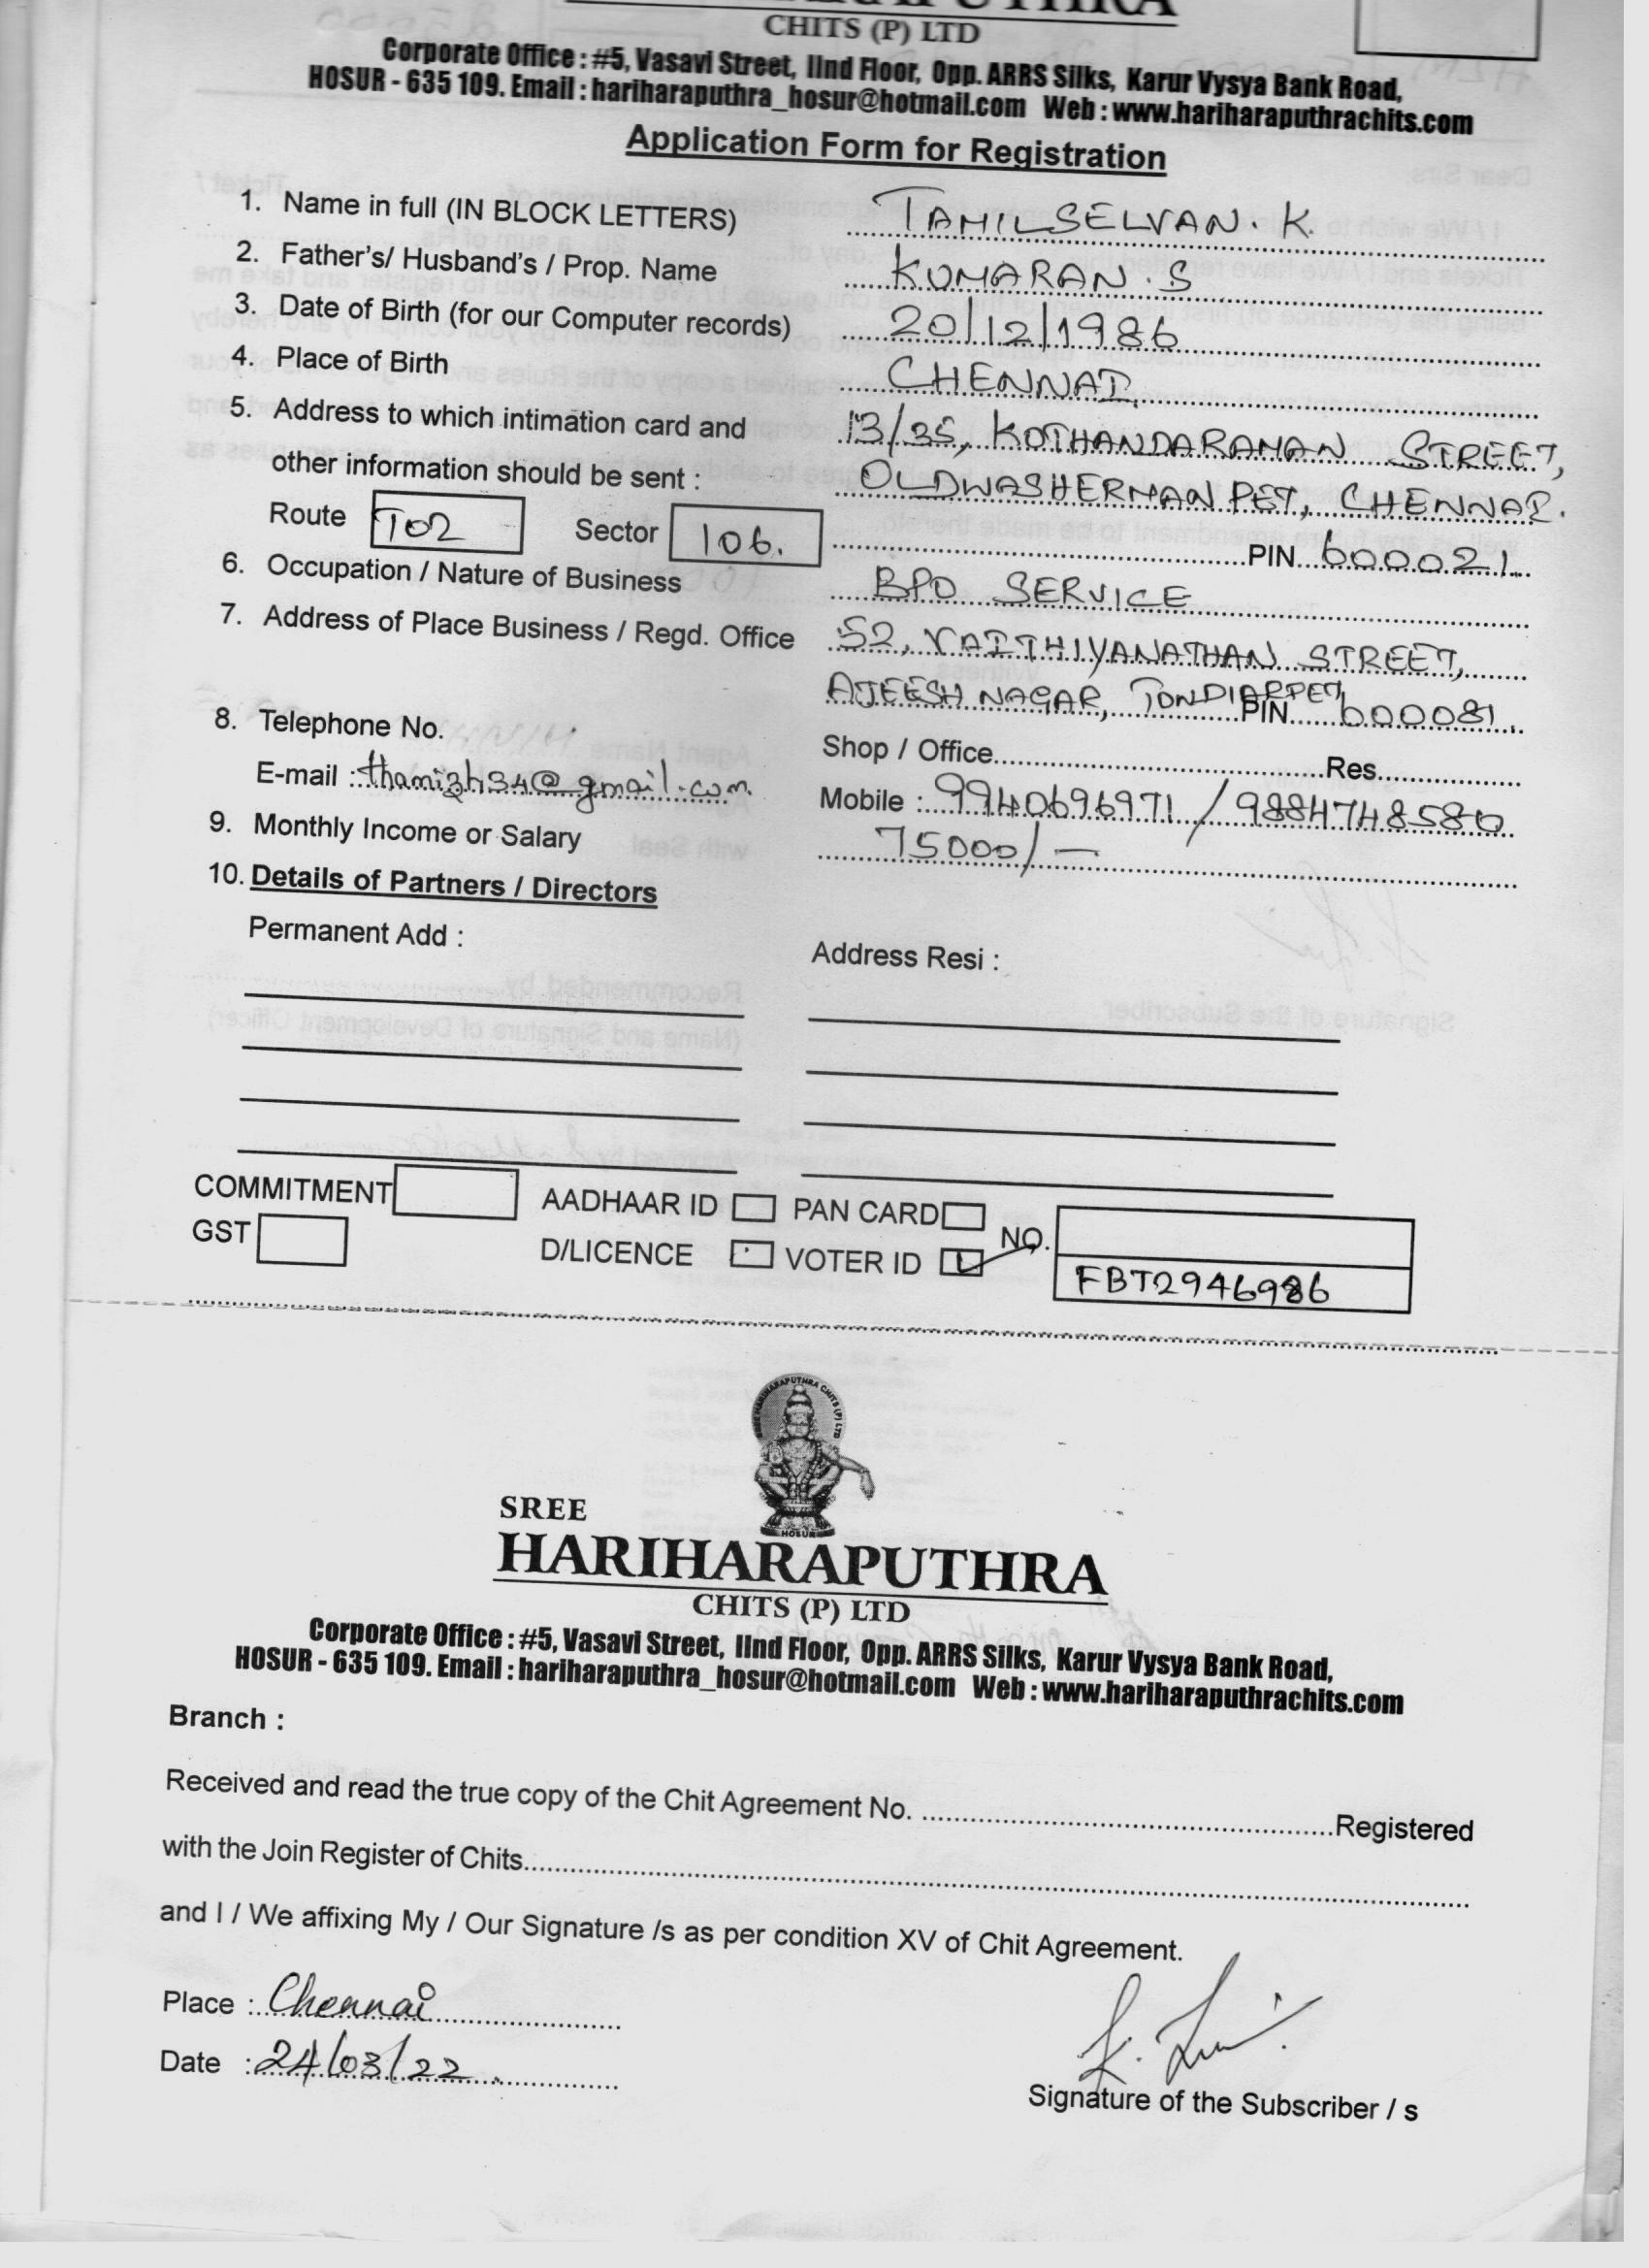 CHITS (P) LTD
Corporate Office : #5, Vasavi Street, IInd Floor, Opp. ARRS Silks, Karur Vysya Bank Road,
HOSUR - 635 109. Email : hariharaputhra_hosur@hotmail.com Web : www.hariharaputhrachits.com
Application Form for Registration
1. Name in full (IN BLOCK LETTERS) TAMILSELVAN. K.
2. Father's/ Husband's / Prop. Name KUMARAN. S
3. Date of Birth (for our Computer records) 20/12/1986
4. Place of Birth CHENNAI
5. Address to which intimation card and 13/35, KOTHANDARAMAN STREET,
other information should be sent : OLDWASHERMANPET, CHENNAI.
Route T02 Sector 106. PIN 600021
6. Occupation / Nature of Business BPO SERVICE
7. Address of Place Business / Regd. Office 52, VAITHIYANATHAN STREET,
AJEESH NAGAR, TONDIARPET, PIN 600081.
8. Telephone No. Shop / Office Res.
E-mail : thamizh34@gmail.com. Mobile : 9940696971 / 9884748580
9. Monthly Income or Salary 75000/-
10. Details of Partners / Directors
Permanent Add : Address Resi :
COMMITMENT AADHAAR ID PAN CARD NO.
GST D/LICENCE VOTER ID FBT2946986
SREE
HARIHARAPUTHRA
CHITS (P) LTD
Corporate Office : #5, Vasavi Street, IInd Floor, Opp. ARRS Silks, Karur Vysya Bank Road,
HOSUR - 635 109. Email : hariharaputhra_hosur@hotmail.com Web : www.hariharaputhrachits.com
Branch :
Received and read the true copy of the Chit Agreement No. Registered
with the Join Register of Chits
and I / We affixing My / Our Signature /s as per condition XV of Chit Agreement.
Place : Chennai
Date : 24/03/22
Signature of the Subscriber / s